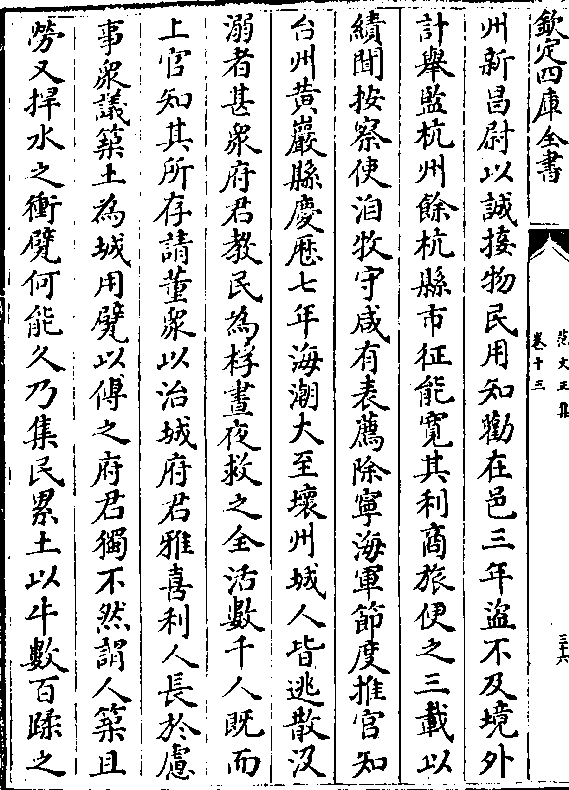 欽定四庫全書
范文正集
卷十三
三十六
州新昌尉以誠接物民用知勸在邑三年盜不及境外
計舉監杭州餘杭縣市征能寛其利商旅便之三載以
績聞按察使洎牧守咸有表薦除寧海軍節度推官知
台州黄巖縣慶厯七年海潮大至壞州城人皆逃散汲
溺者甚衆府君教民為桴晝夜救之全活數千人既而
上官知其所存請董衆以治城府君雅喜利人長於慮
事衆議築土為城用甓以傅之府君獨不然謂人築且
勞又捍水之衝甓何能久乃集民累土以牛數百蹂之